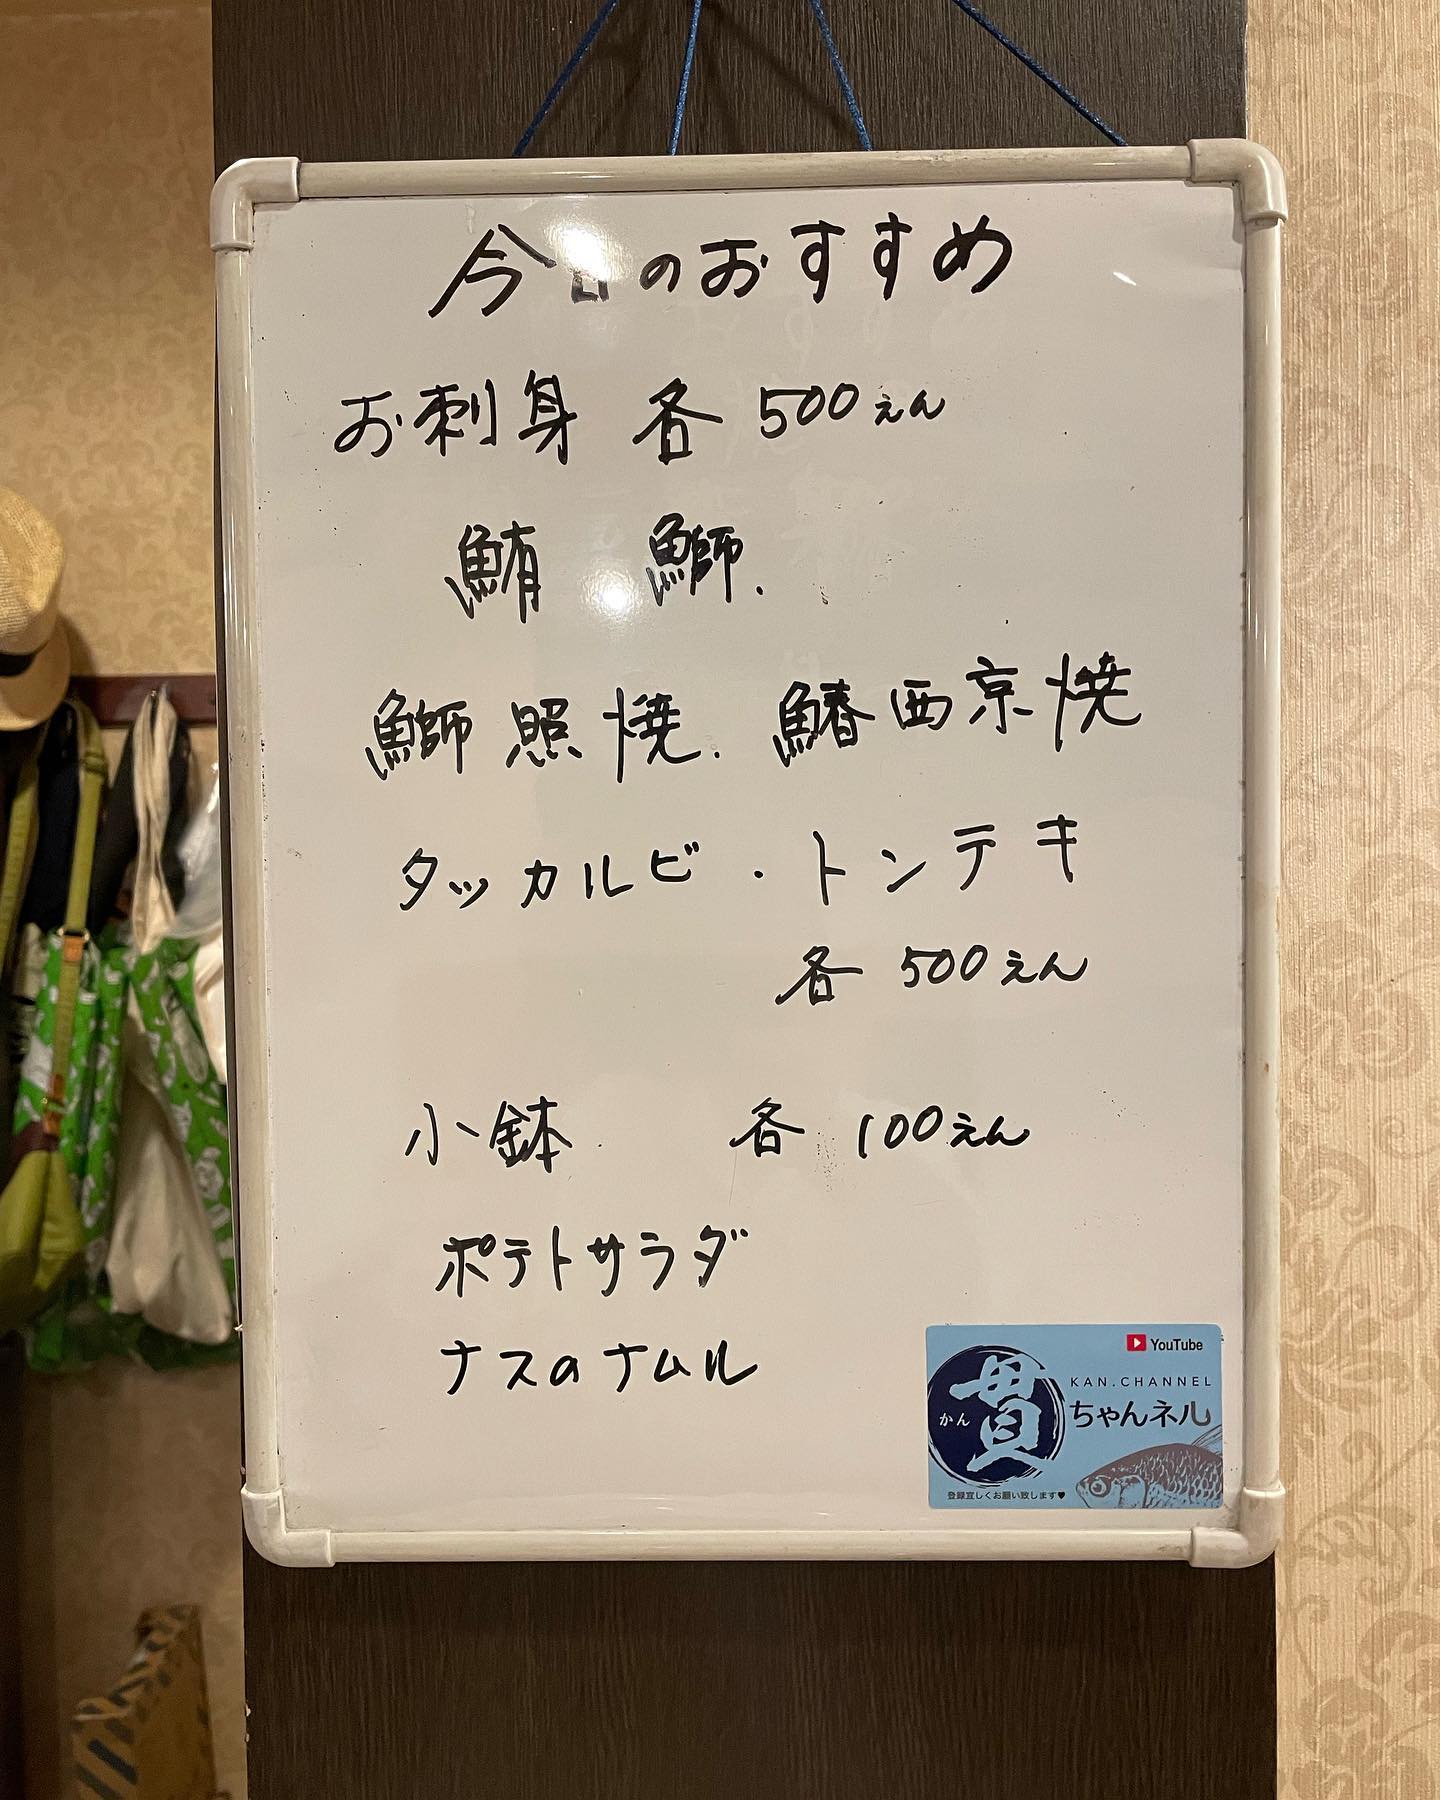 今日のおすすめ
お刺身 各 500えん
鮪 鰤.
鰤照焼. 鰆西京焼
タッカルビ・トンテキ
各 500えん
小鉢 各 100えん
ポテトサラダ
ナスのナムル
YouTube
KAN.CHANNEL
かん 貫 ちゃんネル
登録宜しくお願い致します♥